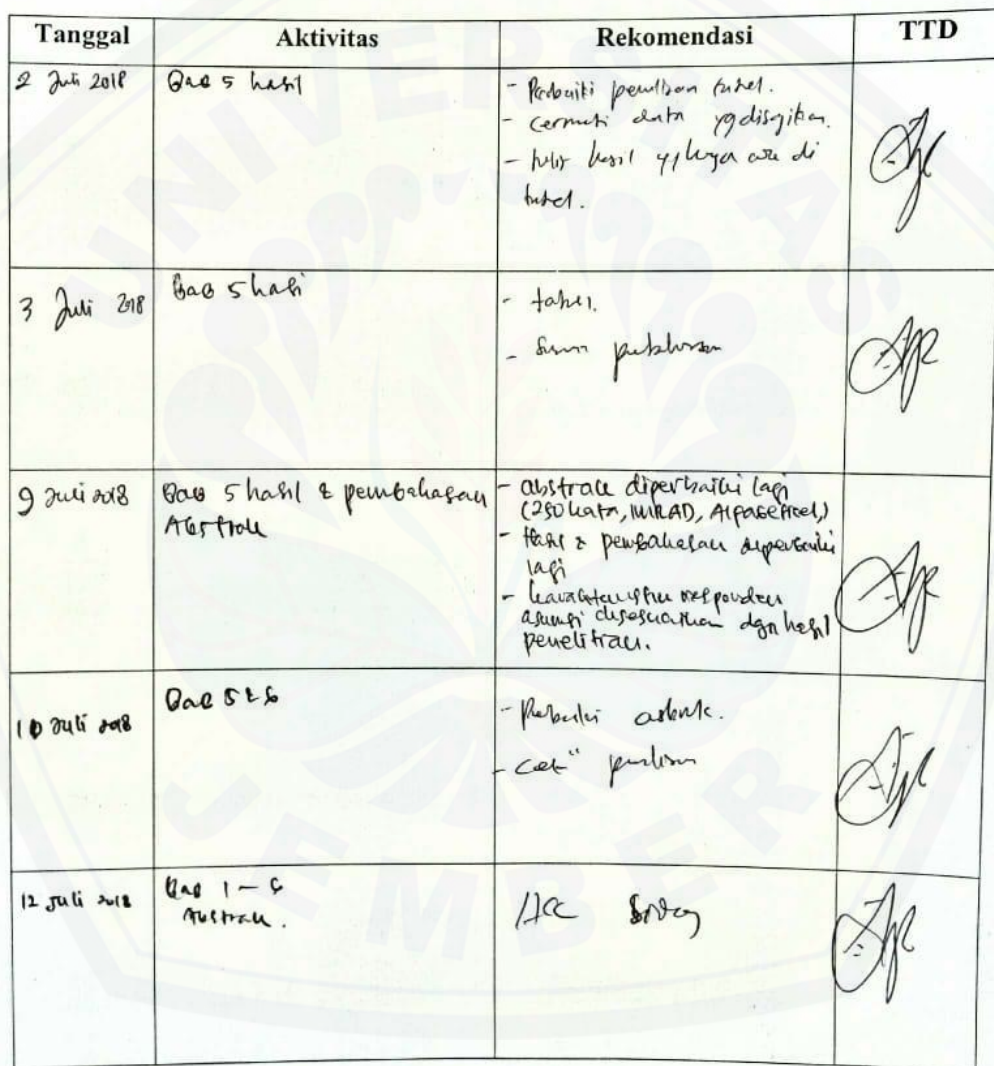 Tanggal Aktivitas Rekomendasi TTD
2 Juli 2018 Bab 5 hasil - Perbaiki penulisan tabel.
- cermati data yg disajikan.
- tulis hasil yg hanya ada di
tabel.
3 Juli 2018 Bab 5 hasil - tabel.
- Susun
9 Juli 2018 Bab 5 hasil & pembahasan - abstrak diperbaiki lagi
Abstrak (250 kata, IMRAD,
- Hasil & pembahasan diperbaiki
lagi
- karakteristik responden
asumsi disesuaikan dgn hasil
penelitian.
10 Juli 2018 Bab 5 & 6 - Perbaiki
- cek"
12 Juli 2018 Bab 1 - 6 ACC Sidang
Abstrak.
UNIVERSITAS
JEMBER